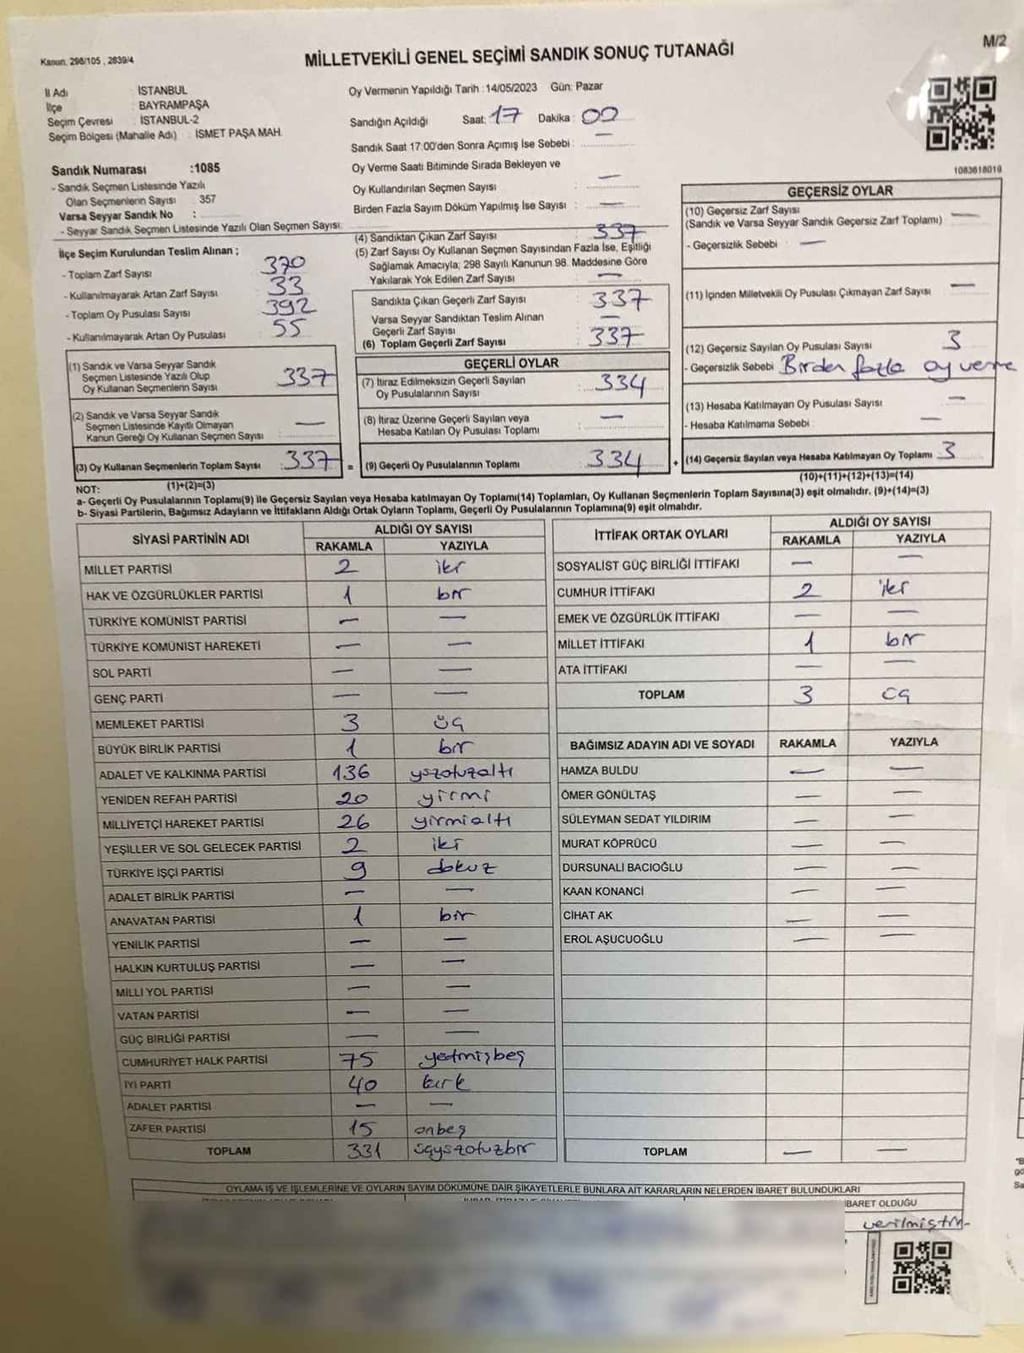 Kanun, 298/105 , 2839/4
MİLLETVEKİLİ GENEL SEÇİMİ SANDIK SONUÇ TUTANAĞI
M/2
İl Adı : İSTANBUL
İlçe : BAYRAMPAŞA
Seçim Çevresi : İSTANBUL-2
Seçim Bölgesi (Mahalle Adı) : İSMET PAŞA MAH.
Oy Vermenin Yapıldığı Tarih :14/05/2023 Gün: Pazar
Sandığın Açıldığı Saat: 17 Dakika : 00
Sandık Saat 17:00'den Sonra Açımış İse Sebebi : —
Oy Verme Saati Bitiminde Sırada Bekleyen ve
Oy Kullandırılan Seçmen Sayısı : —
Birden Fazla Sayım Döküm Yapılmış İse Sayısı : —
1083618019
Sandık Numarası :1085
- Sandık Seçmen Listesinde Yazılı
Olan Seçmenlerin Sayısı : 357
Varsa Seyyar Sandık No :
- Seyyar Sandık Seçmen Listesinde Yazılı Olan Seçmen Sayısı:
İlçe Seçim Kurulundan Teslim Alınan ;
- Toplam Zarf Sayısı 370
- Kullanılmayarak Artan Zarf Sayısı 33
- Toplam Oy Pusulası Sayısı 392
- Kullanılmayarak Artan Oy Pusulası 55
(1) Sandık ve Varsa Seyyar Sandık
Seçmen Listesinde Yazılı Olup
Oy Kullanan Seçmenlerin Sayısı 337
(2) Sandık ve Varsa Seyyar Sandık
Seçmen Listesinde Kayıtlı Olmayan
Kanun Gereği Oy Kullanan Seçmen Sayısı —
(3) Oy Kullanan Seçmenlerin Toplam Sayısı 337 =
(1)+(2)=(3)
(4) Sandıktan Çıkan Zarf Sayısı : 337
(5) Zarf Sayısı Oy Kullanan Seçmen Sayısından Fazla İse, Eşitliği
Sağlamak Amacıyla; 298 Sayılı Kanunun 98. Maddesine Göre
Yakılarak Yok Edilen Zarf Sayısı : —
Sandıkta Çıkan Geçerli Zarf Sayısı : 337
Varsa Seyyar Sandıktan Teslim Alınan
Geçerli Zarf Sayısı : —
(6) Toplam Geçerli Zarf Sayısı : 337
GEÇERLİ OYLAR
(7) İtiraz Edilmeksizin Geçerli Sayılan
Oy Pusulalarının Sayısı : 334
(8) İtiraz Üzerine Geçerli Sayılan veya
Hesaba Katılan Oy Pusulası Toplamı : —
(9) Geçerli Oy Pusulalarının Toplamı 334 +
GEÇERSİZ OYLAR
(10) Geçersiz Zarf Sayısı —
(Sandık ve Varsa Seyyar Sandık Geçersiz Zarf Toplamı)
- Geçersizlik Sebebi : —
(11) İçinden Milletvekili Oy Pusulası Çıkmayan Zarf Sayısı —
(12) Geçersiz Sayılan Oy Pusulası Sayısı : 3
- Geçersizlik Sebebi : Birden fazla oy verme
(13) Hesaba Katılmayan Oy Pusulası Sayısı : —
- Hesaba Katılmama Sebebi : —
(14) Geçersiz Sayılan veya Hesaba Katılmayan Oy Toplamı 3
(10)+(11)+(12)+(13)=(14)
NOT:
a- Geçerli Oy Pusulalarının Toplamı(9) ile Geçersiz Sayılan veya Hesaba katılmayan Oy Toplamı(14) Toplamları, Oy Kullanan Seçmenlerin Toplam Sayısına(3) eşit olmalıdır. (9)+(14)=(3)
b- Siyasi Partilerin, Bağımsız Adayların ve İttifakların Aldığı Ortak Oyların Toplamı, Geçerli Oy Pusulalarının Toplamına(9) eşit olmalıdır.
SİYASİ PARTİNİN ADI ALDIĞI OY SAYISI
RAKAMLA YAZIYLA
MİLLET PARTİSİ 2 iki
HAK VE ÖZGÜRLÜKLER PARTİSİ 1 bir
TÜRKİYE KOMÜNİST PARTİSİ — —
TÜRKİYE KOMÜNİST HAREKETİ — —
SOL PARTİ — —
GENÇ PARTİ — —
MEMLEKET PARTİSİ 3 üç
BÜYÜK BİRLİK PARTİSİ 1 bir
ADALET VE KALKINMA PARTİSİ 136 yüzotuzaltı
YENİDEN REFAH PARTİSİ 20 yirmi
MİLLİYETÇİ HAREKET PARTİSİ 26 yirmialtı
YEŞİLLER VE SOL GELECEK PARTİSİ 2 iki
TÜRKİYE İŞÇİ PARTİSİ 9 dokuz
ADALET BİRLİK PARTİSİ — —
ANAVATAN PARTİSİ 1 bir
YENİLİK PARTİSİ — —
HALKIN KURTULUŞ PARTİSİ — —
MİLLİ YOL PARTİSİ — —
VATAN PARTİSİ — —
GÜÇ BİRLİĞİ PARTİSİ — —
CUMHURİYET HALK PARTİSİ 75 yetmişbeş
İYİ PARTİ 40 kırk
ADALET PARTİSİ — —
ZAFER PARTİSİ 15 onbeş
TOPLAM 331 üçyüzotuzbir
İTTİFAK ORTAK OYLARI ALDIĞI OY SAYISI
RAKAMLA YAZIYLA
SOSYALİST GÜÇ BİRLİĞİ İTTİFAKI — —
CUMHUR İTTİFAKI 2 iki
EMEK VE ÖZGÜRLÜK İTTİFAKI — —
MİLLET İTTİFAKI 1 bir
ATA İTTİFAKI — —
TOPLAM 3 üç
BAĞIMSIZ ADAYIN ADI VE SOYADI RAKAMLA YAZIYLA
HAMZA BULDU — —
ÖMER GÖNÜLTAŞ — —
SÜLEYMAN SEDAT YILDIRIM — —
MURAT KÖPRÜCÜ — —
DURSUNALİ BACIOĞLU — —
KAAN KONANCİ — —
CİHAT AK — —
EROL AŞUCUOĞLU — —
TOPLAM — —
OYLAMA İŞ VE İŞLEMLERİNE VE OYLARIN SAYIM DÖKÜMÜNE DAİR ŞİKAYETLERLE BUNLARA AİT KARARLARIN NELERDEN İBARET BULUNDUKLARI
İBARET OLDUĞU
verilmiştir.